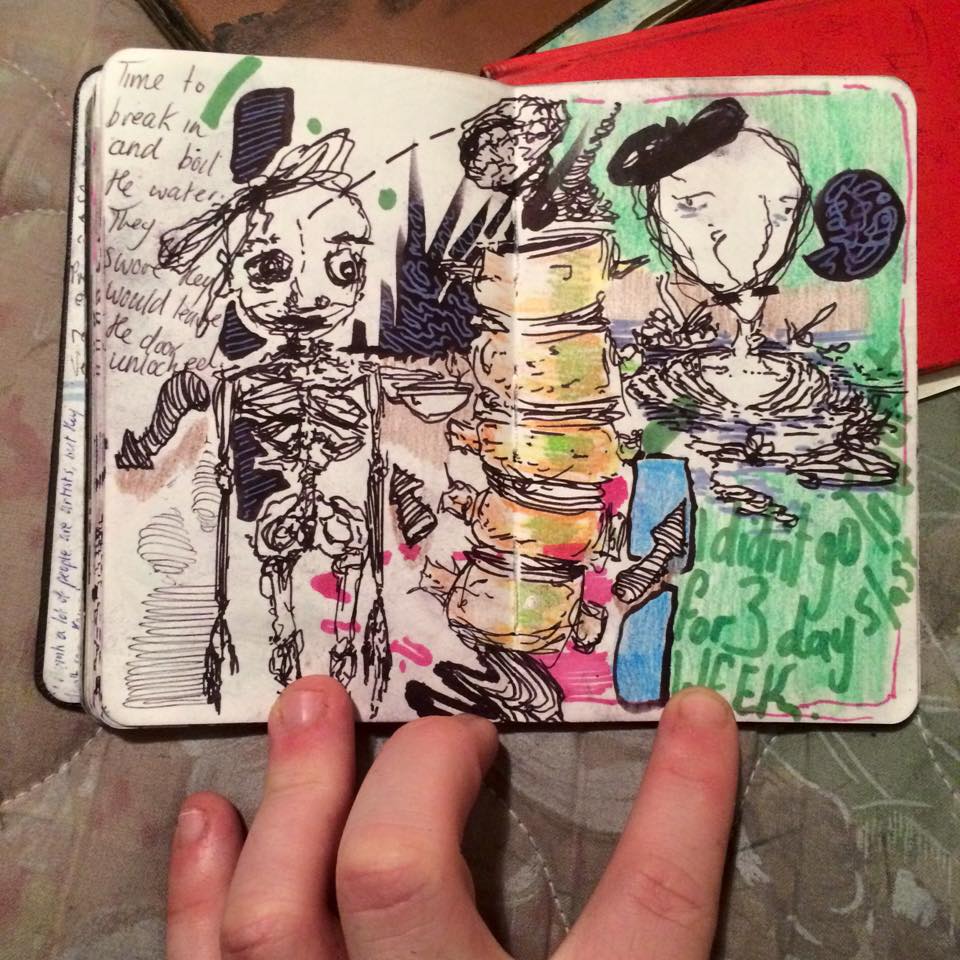 Time to
break in
and boil
the water.
They
swore they
would leave
the door
unlocked.
a lot of people are artists, but they
I didn't go
for 3 day
WEEK.